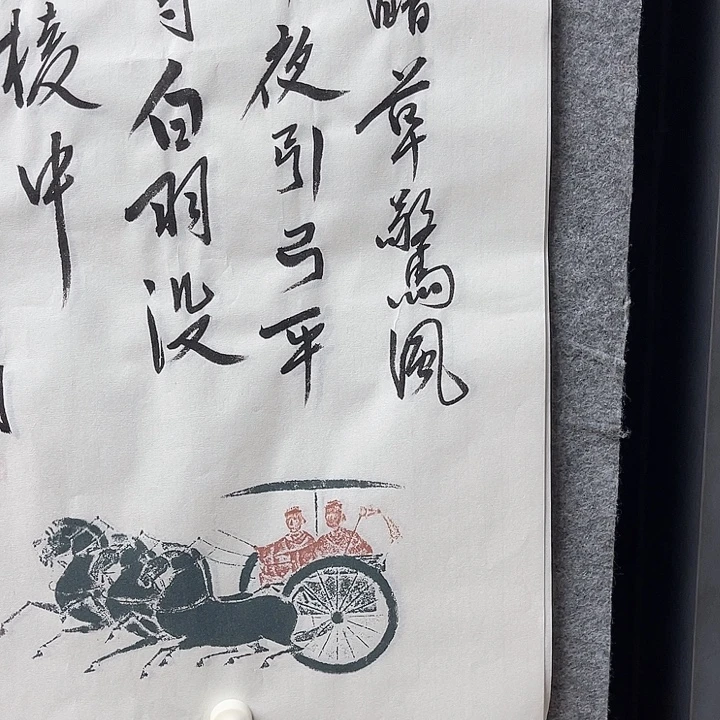 暗草驚風
夜引弓平
白羽没
棱中